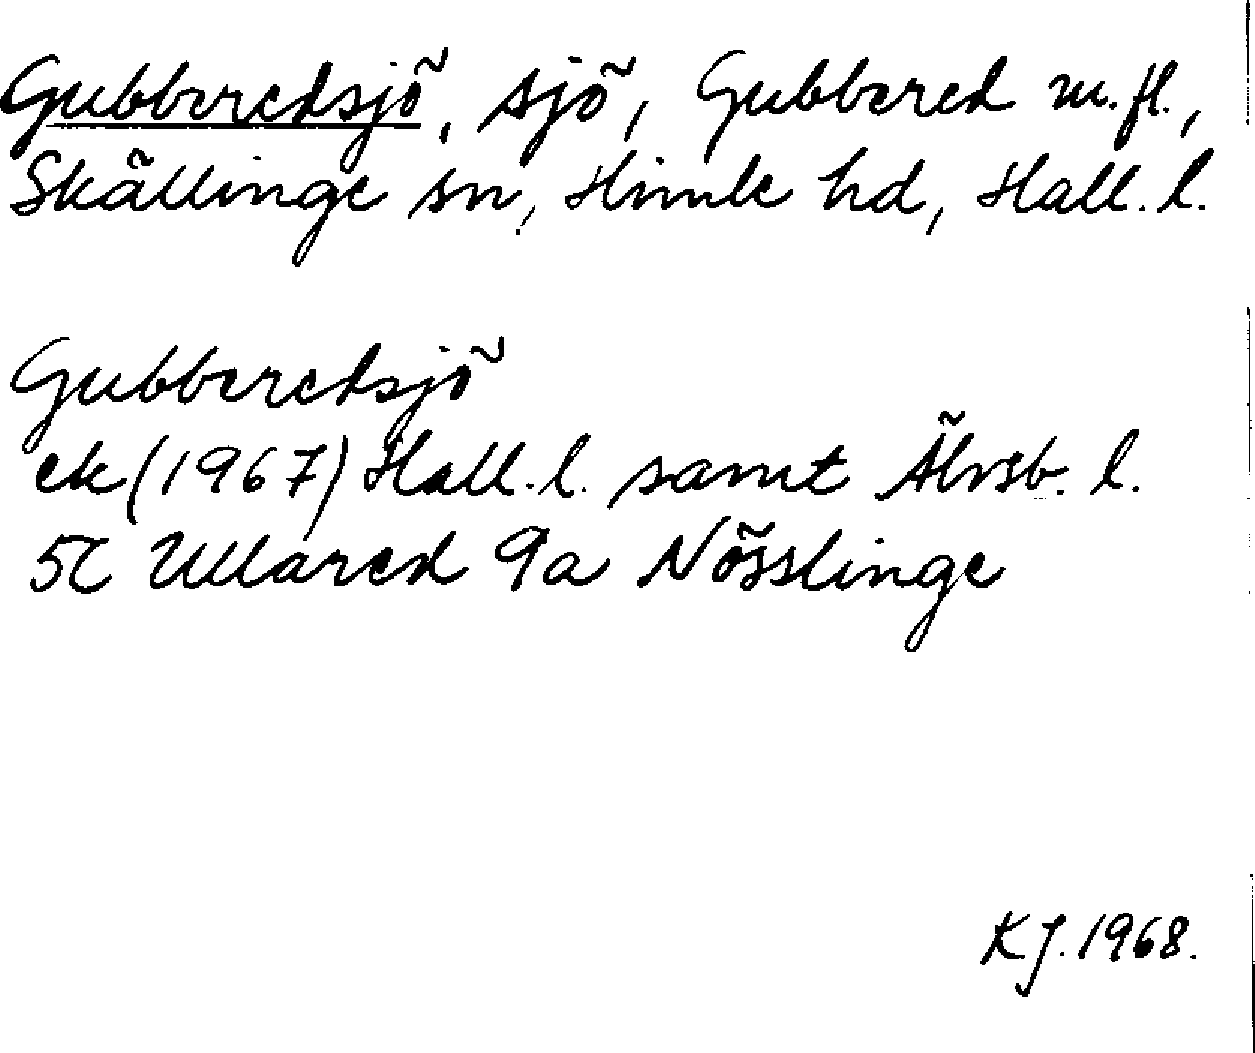 Gubberedsjö, sjö, Gubbered m.fl.,
Skällinge sn, Himle hd, Hall. l.
Gubberedsjö
ek (1967) Hall. l. samt Älvsb. l.
5C Ullared 9a Nösslinge
KJ. 1968.